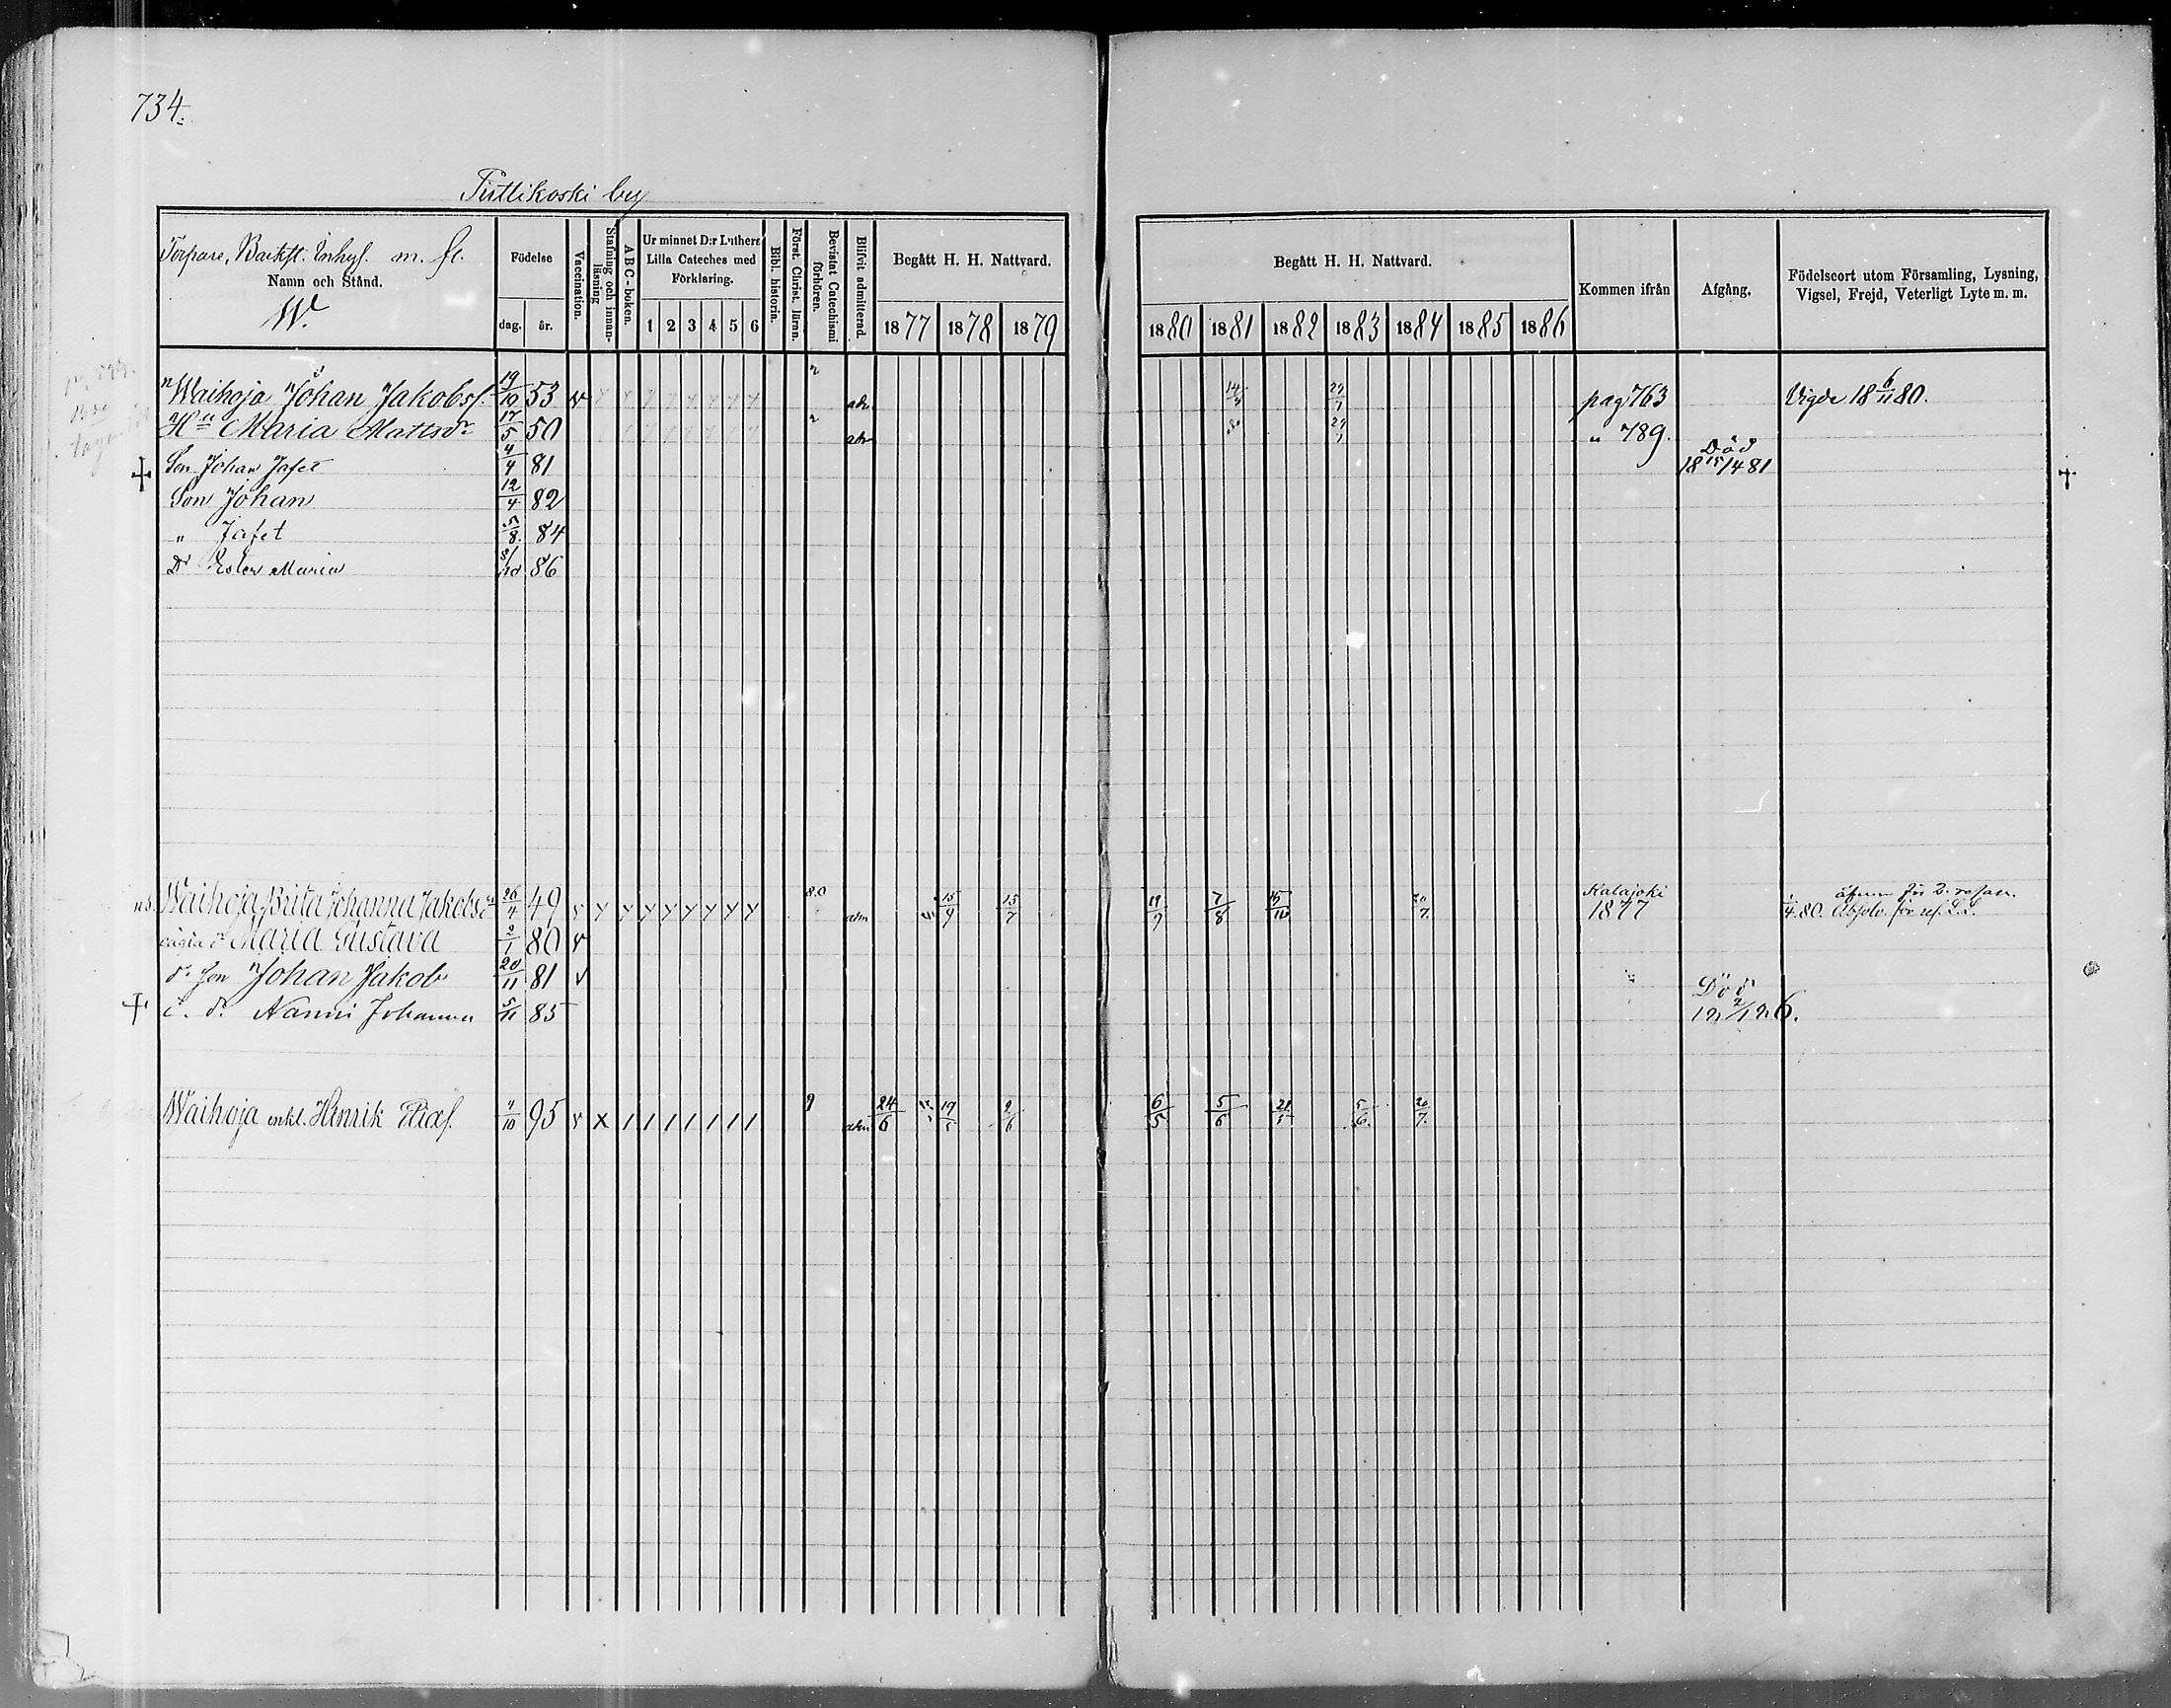 734.
Tuttikoski by
Torpare, Backst. Inhys. m. fl.
Namn och Stånd.
W.
Födelse
dag. år.
Vaccination.
Stafning och innan-läsning
ABC-boken.
Ur minnet D:r Luthers Lilla Cateches med Förklaring.
1 2 3 4 5 6
Bibl. historia.
Först. Christ. läran.
Bevistat Catechismi förhören.
Blifvit admitterad.
Begått H. H. Nattvard.
1877 1878 1879
Begått H. H. Nattvard.
1880 1881 1882 1883 1884 1885 1886
Kommen ifrån
Afgång.
Födelseort utom Församling, Lysning, Vigsel, Frejd, Veterligt Lyte m. m.
Waihoja Johan Jakobss. 19/10 53 v adm. 14/8 29/7 pag 763 Vigde 18 6/11 80.
Hu Maria Mattsdr 17/5 50 adm 29/7 " 789.
Son Johan Jafet 4/4 81 Död 18 15/4 81
Son Johan 12/4 82
" Jafet 5/8 84
Dr Ester Maria 86
Waihoja Brita Johanna Jakobsdr 26/4 49 v y y y y y y y y 80 adm 15/9 13/7 19/9 7/8 15/10 20/7 Kalajoki 1877 4.80. Absolv. för
oägta d. Maria Gustava 2/1 80 v
d:o son Johan Jakob 20/11 81 v
o. d. Nanni Johanna 5/11 85 Död
Waihoja enkl. Henrik Eliæs. 4/10 95 v x / / / / / / / 9 adm 24/6 19/5 9/6 6/5 5/6 21/5 5/6 20/7